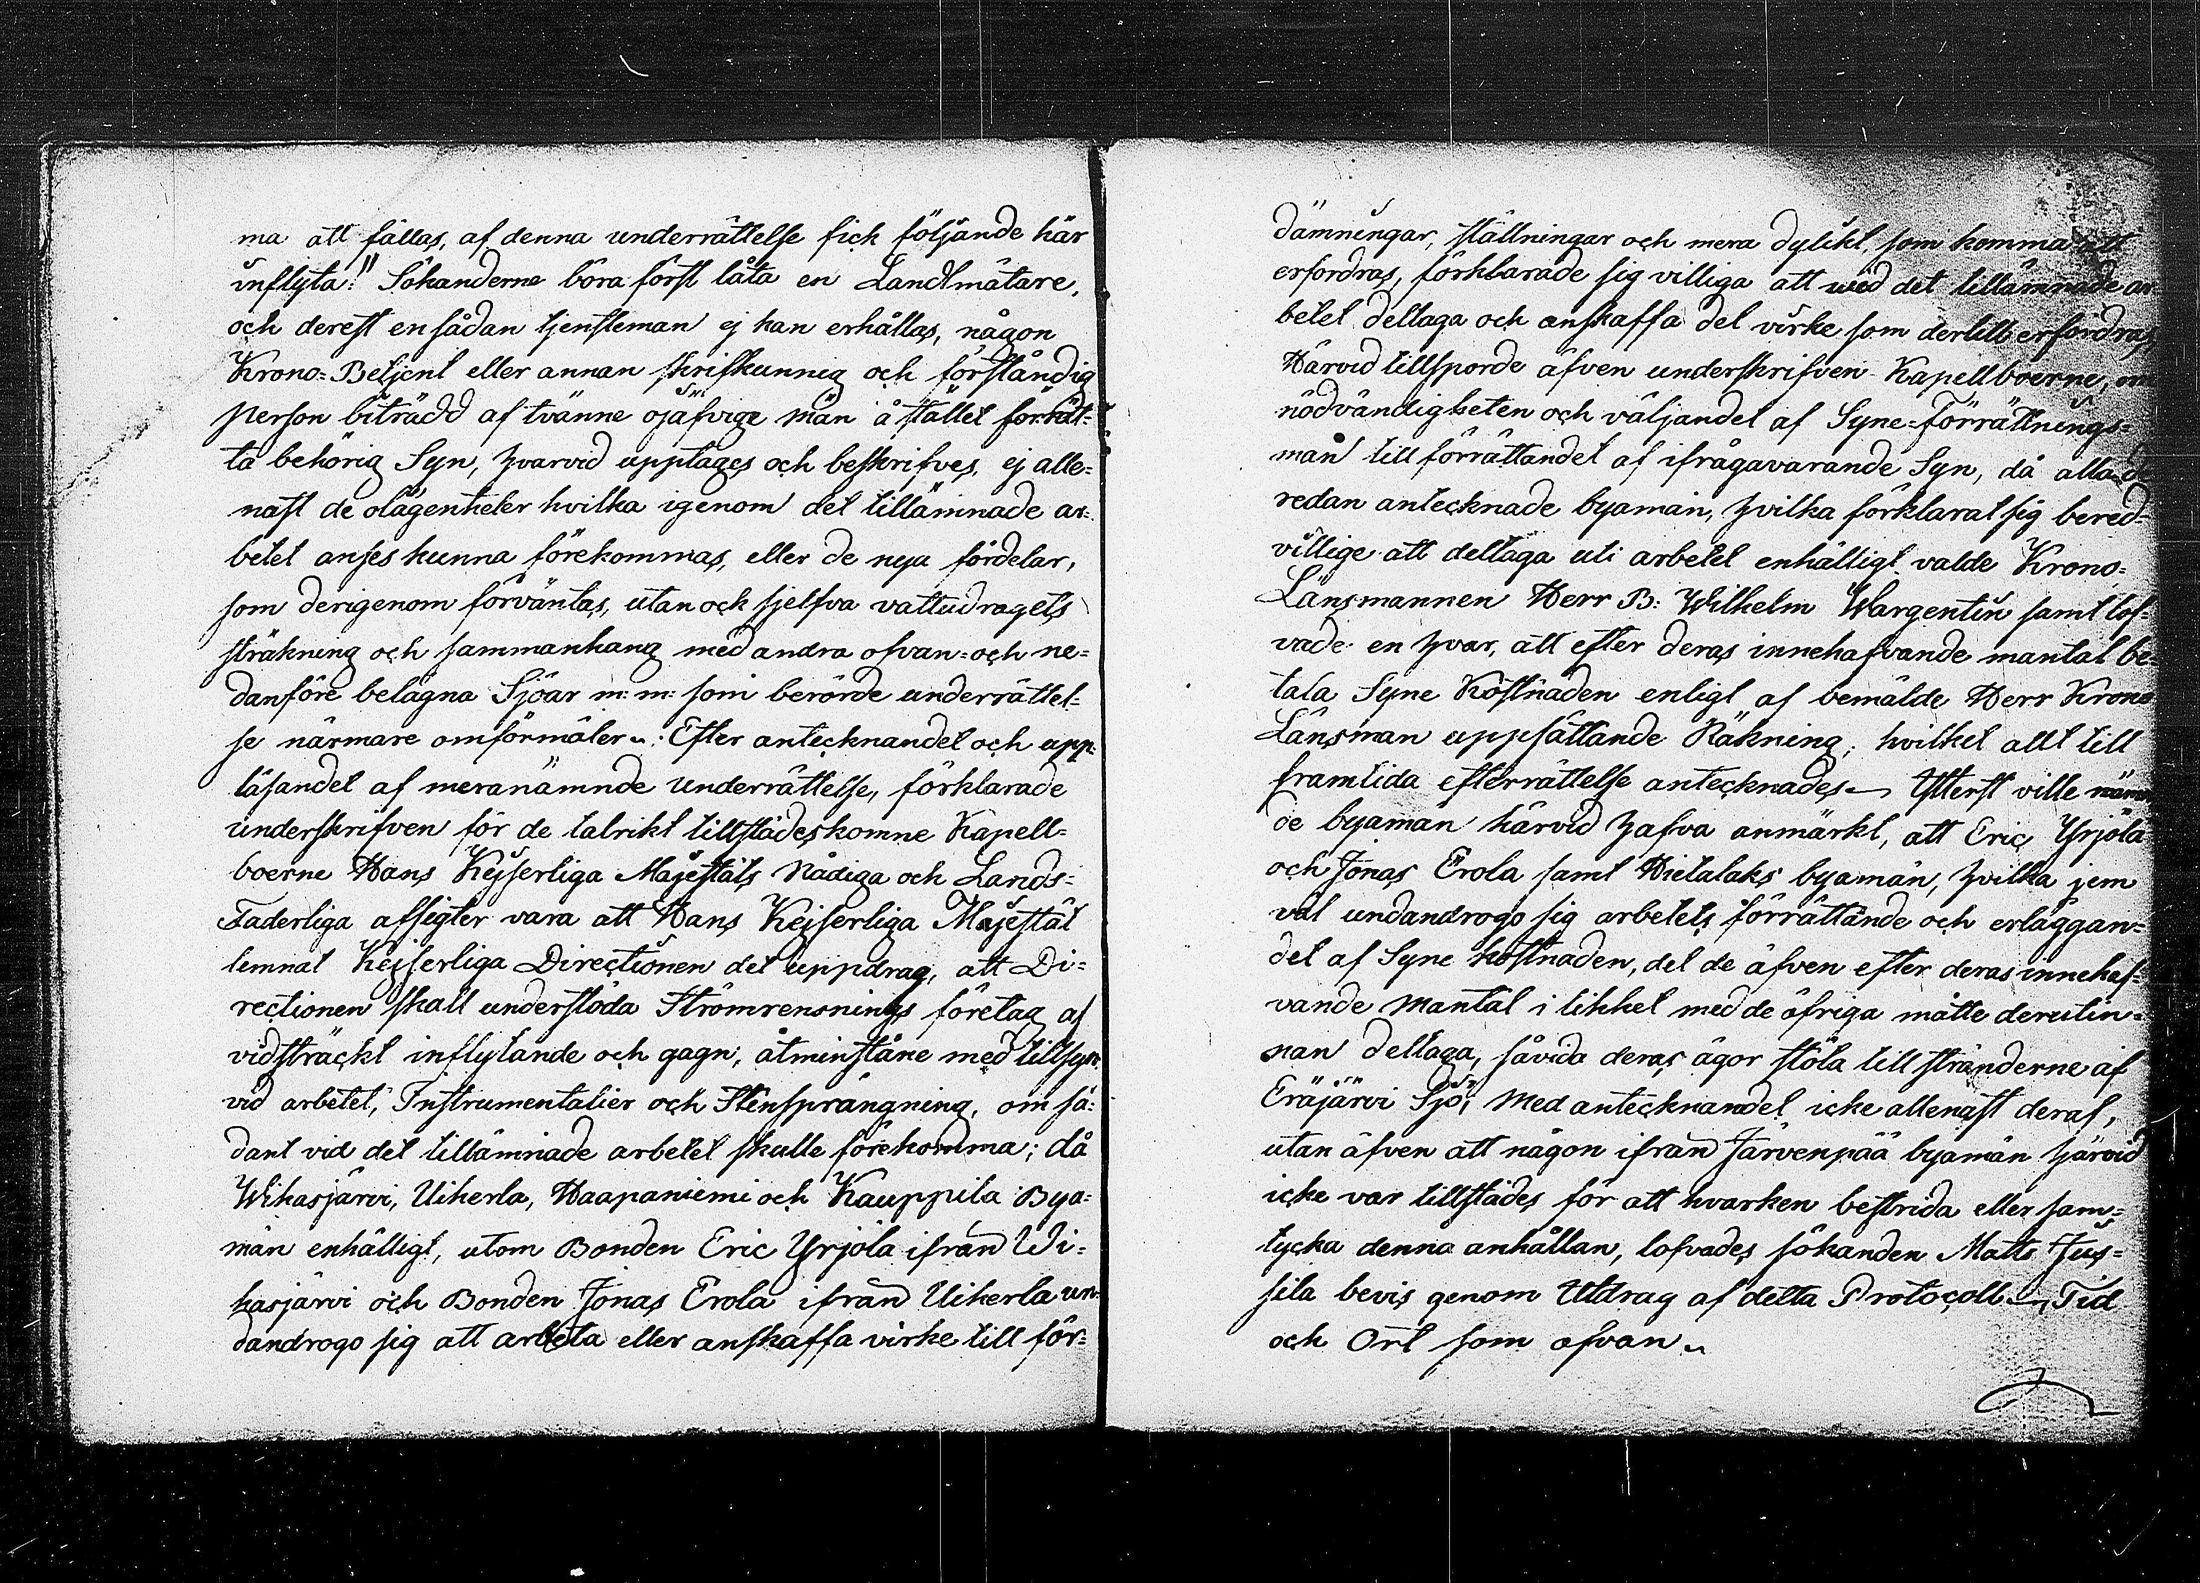 ma att fällas, af denna underrättelse fick följande här
inflyta!" Sökanderne böra först låta en Landtmätare,
och derest en sådan tjensteman ej kan erhållas, någon
Krono-Betjent eller annan skrifkunnig och förståndig
person biträdd af tvänne ojäfvige män å stället förrät-
ta behörig Syn, hvarvid upptages och beskrifves, ej alle-
nast de olägenheter hvilka igenom det tillämnade ar-
betet anses kunna förekommas, eller de nya fördelar,
som derigenom förväntas, utan ock sjelfva vattudragets
sträkning och sammanhang med andra ofvan- och ne-
danföre belägna Sjöar m: m: som berörde underrättel-
se närmare omförmäler. Efter antecknandet och upp-
läsandet af meranämnde underrättelse, förklarade
underskrifven för de talrikt tillstädeskomne Kapell-
boerne Hans Kejserliga Majestäts Nådiga och Lands-
Faderliga afsigter vara att Hans Kejserliga Majestät
lemnat Kejserliga Directionen det uppdrag, att Di-
rectionen skall understöda Strömrensnings företag af
vidsträckt inflytande och gagn; åtminstone med tillsyn
vid arbetet, Instrumentalier och Stensprängning, om så-
dant vid det tillämnade arbetet skulle förekomma; då
Wihasjärvi, Uiherla, Haapaniemi och Kauppila Bya-
män enhälligt, utom Bonden Eric Yrjölä ifrån Wi-
hasjärvi och Bonden Jonas Erola ifrån Uiherla un-
dandrogo sig att arbeta eller anskaffa virke till för-
dämningar, ställningar och mera dylikt, som komma att
erfordras, förklarade sig villiga att wid det tillämnade ar
betet deltaga och anskaffa det virke som dertill erfordras,
Härvid tillsporde äfven underskrifven Kapellboerne, om
nödvändigheten och väljandet af Syne-Förrättnings-
man till förrättandet af ifrågavarande Syn, då alla de
redan antecknade byamän, hvilka förklarat sig bered-
villige att deltaga uti arbetet enhälligt valde Krono-
Länsmannen Herr B: Wilhelm Wargentin samt lof-
vade en hvar, att efter deras innehafvande mantal be-
tala Syne Kostnaden enligt af bemälde Herr Krono
Länsman uppsättande Räkning, hvilket allt till
framtida efterrättelse antecknades. Ytterst ville nämn
de byamän härvid hafva anmärkt, att Eric Yrjölä
och Jonas Erola samt Hietalaks byamän, hvilka jem
väl undandrogo sig arbetets förrättande och erläggan-
det af Syne kostnaden, det de äfven efter deras innehaf-
vande mantal i likhet med de öfriga måtte derutin-
nan deltaga, såvida deras ägor stöta till stränderne af
Eräjärvi Sjö; Med antecknandet icke allenast deraf,
utan äfven att någon ifrån Järvenpää byamän härvid
icke var tillstädes för att hvarken bestrida eller sam-
tycka denna anhållan, lofvades sökanden Matts Jus-
sila bevis genom Utdrag af detta Protocoll. Tid
och Ort som ofvan.